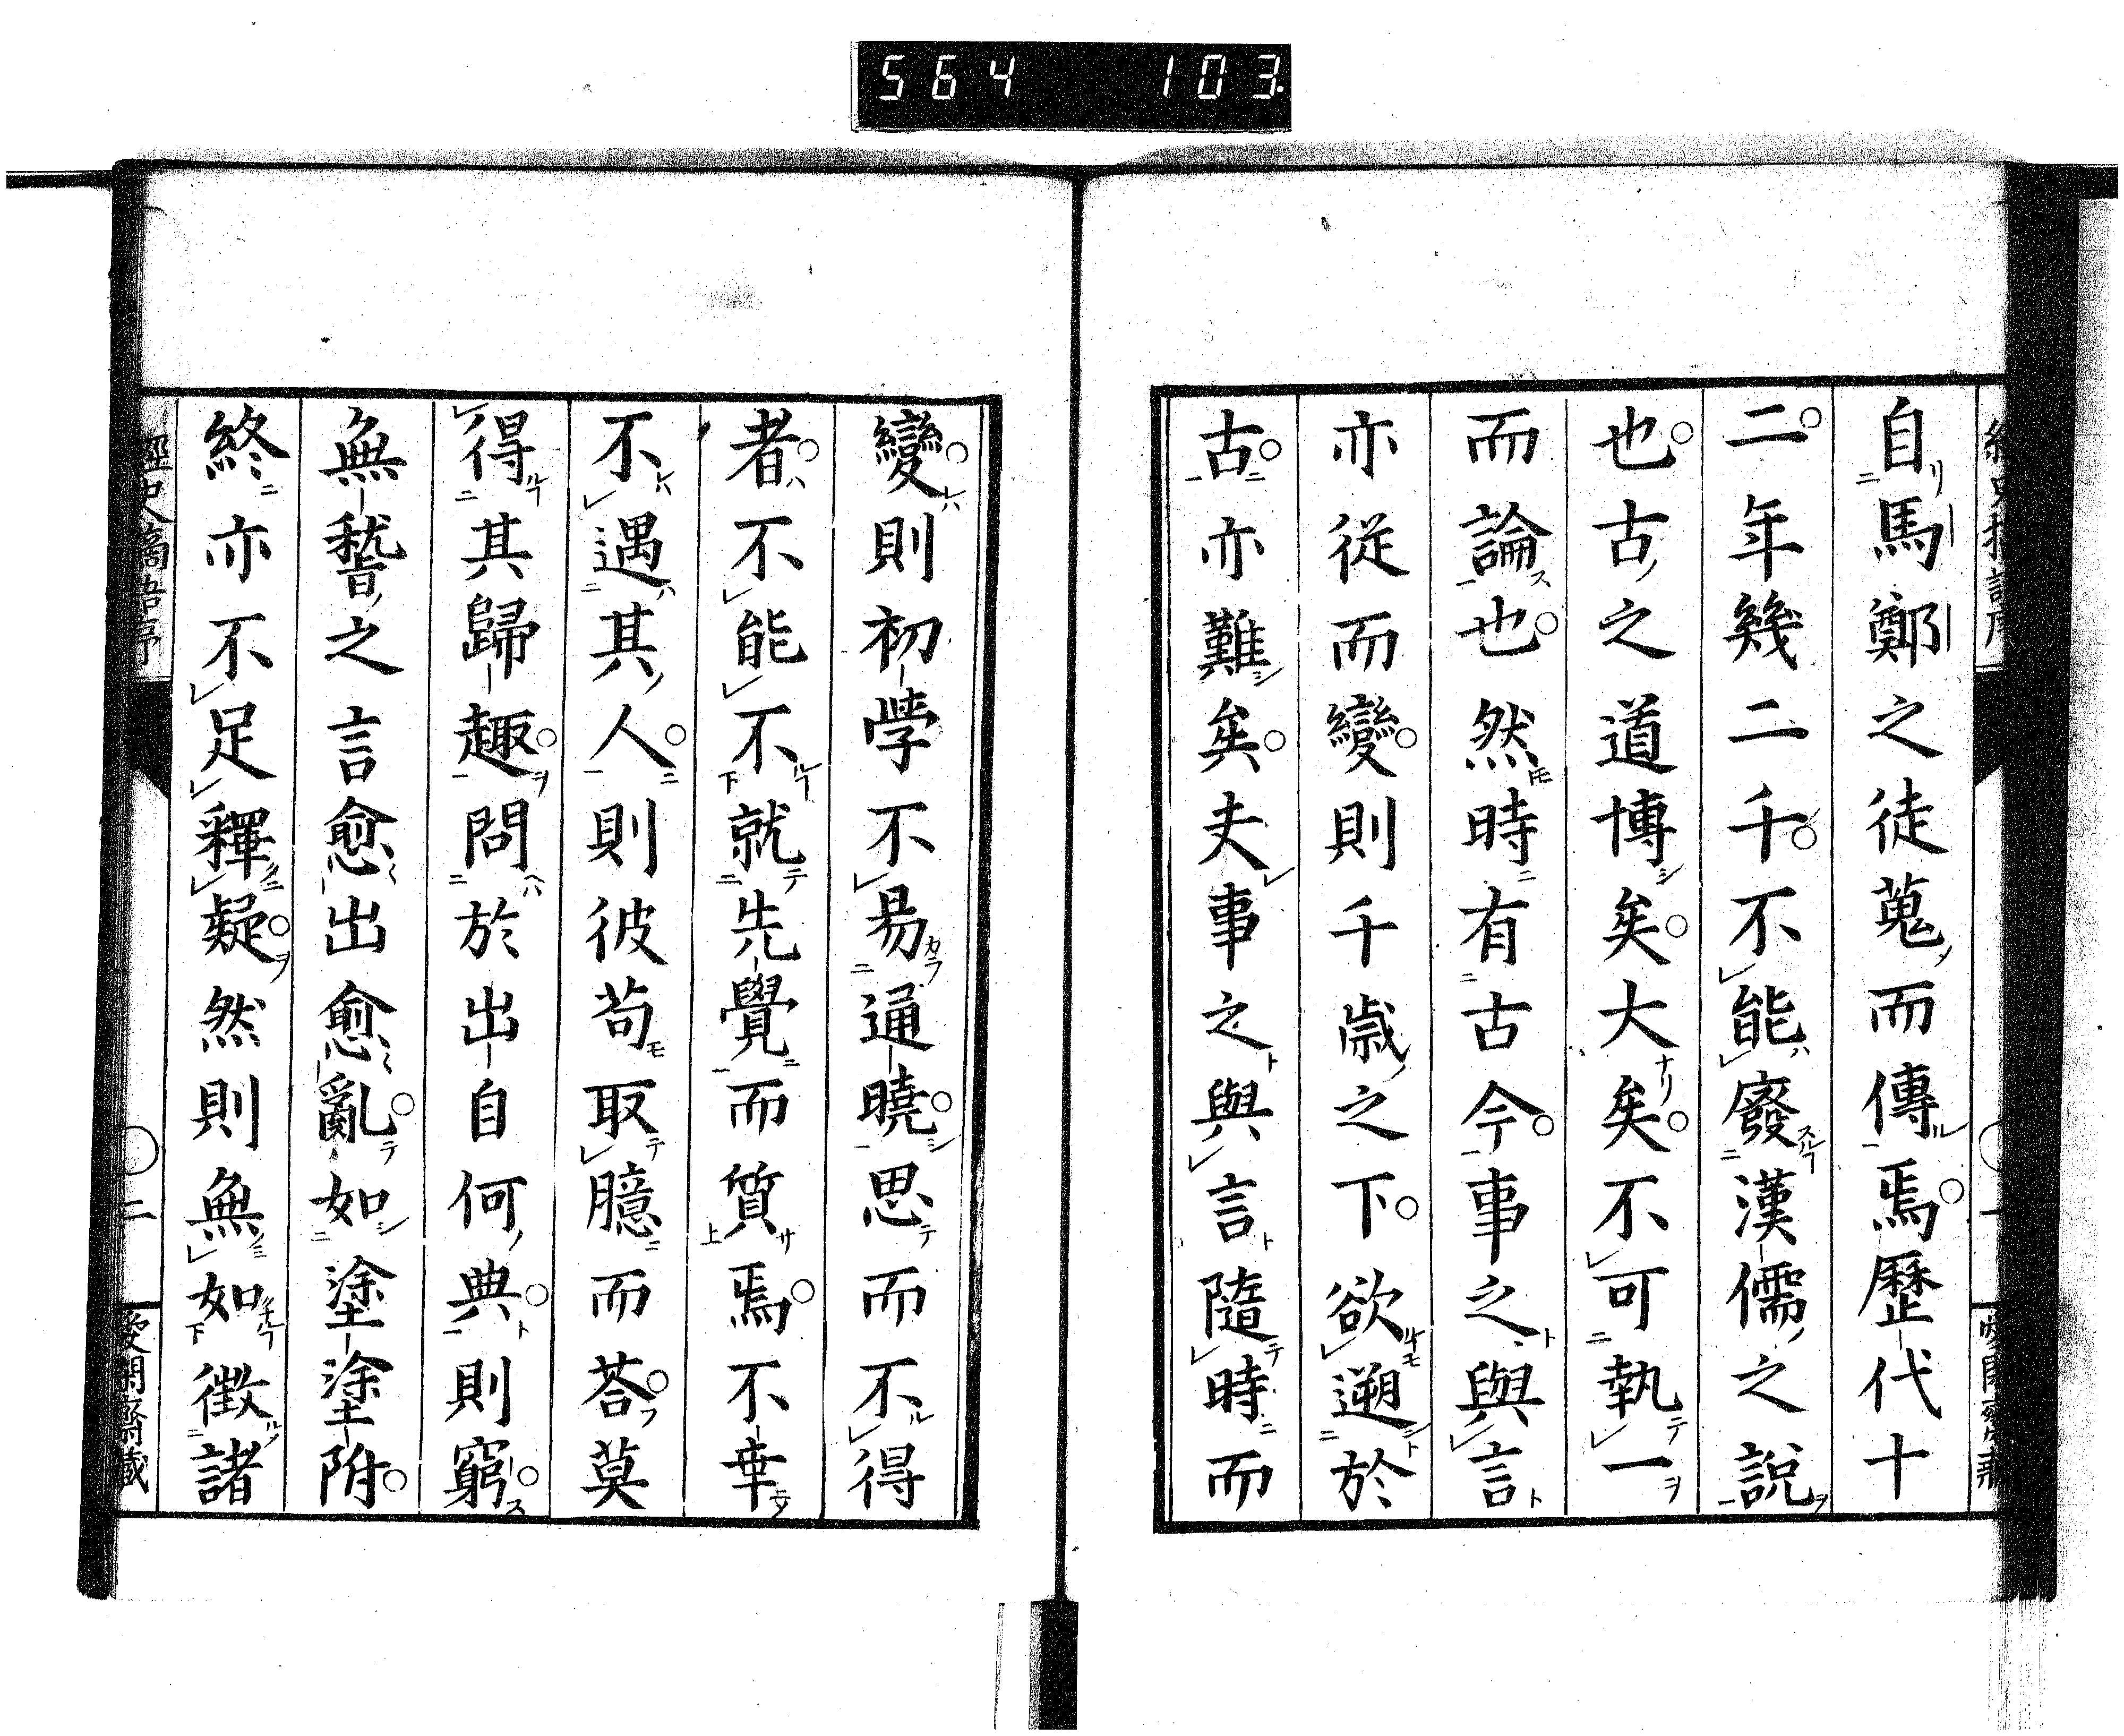 564 103
自馬鄭之徒蒐而傳焉歷代十
二年幾二千不能廢漢儒之說
也古之道博矣大矣不可執一
而論也然時有古今事之與言
亦從而變則千歲之下欲遡於
古亦難矣夫事之與言隨時而
變則初學不易通曉思而不得
者不能不就先覺而質焉不幸
不遇其人則彼苟取臆而荅莫
得其歸趣問於出自何典則窮
無稽之言愈出愈亂如塗塗附
終亦不足釋疑然則無如徵諸
經史摘語序
二
愛閑齋藏